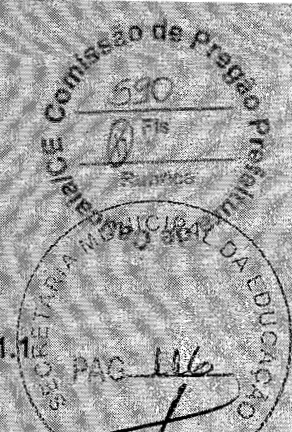 Comissão de Pregão
590
Fls
SECRETARIA MUNICIPAL DA EDUCAÇÃO
1.1
PAG 116